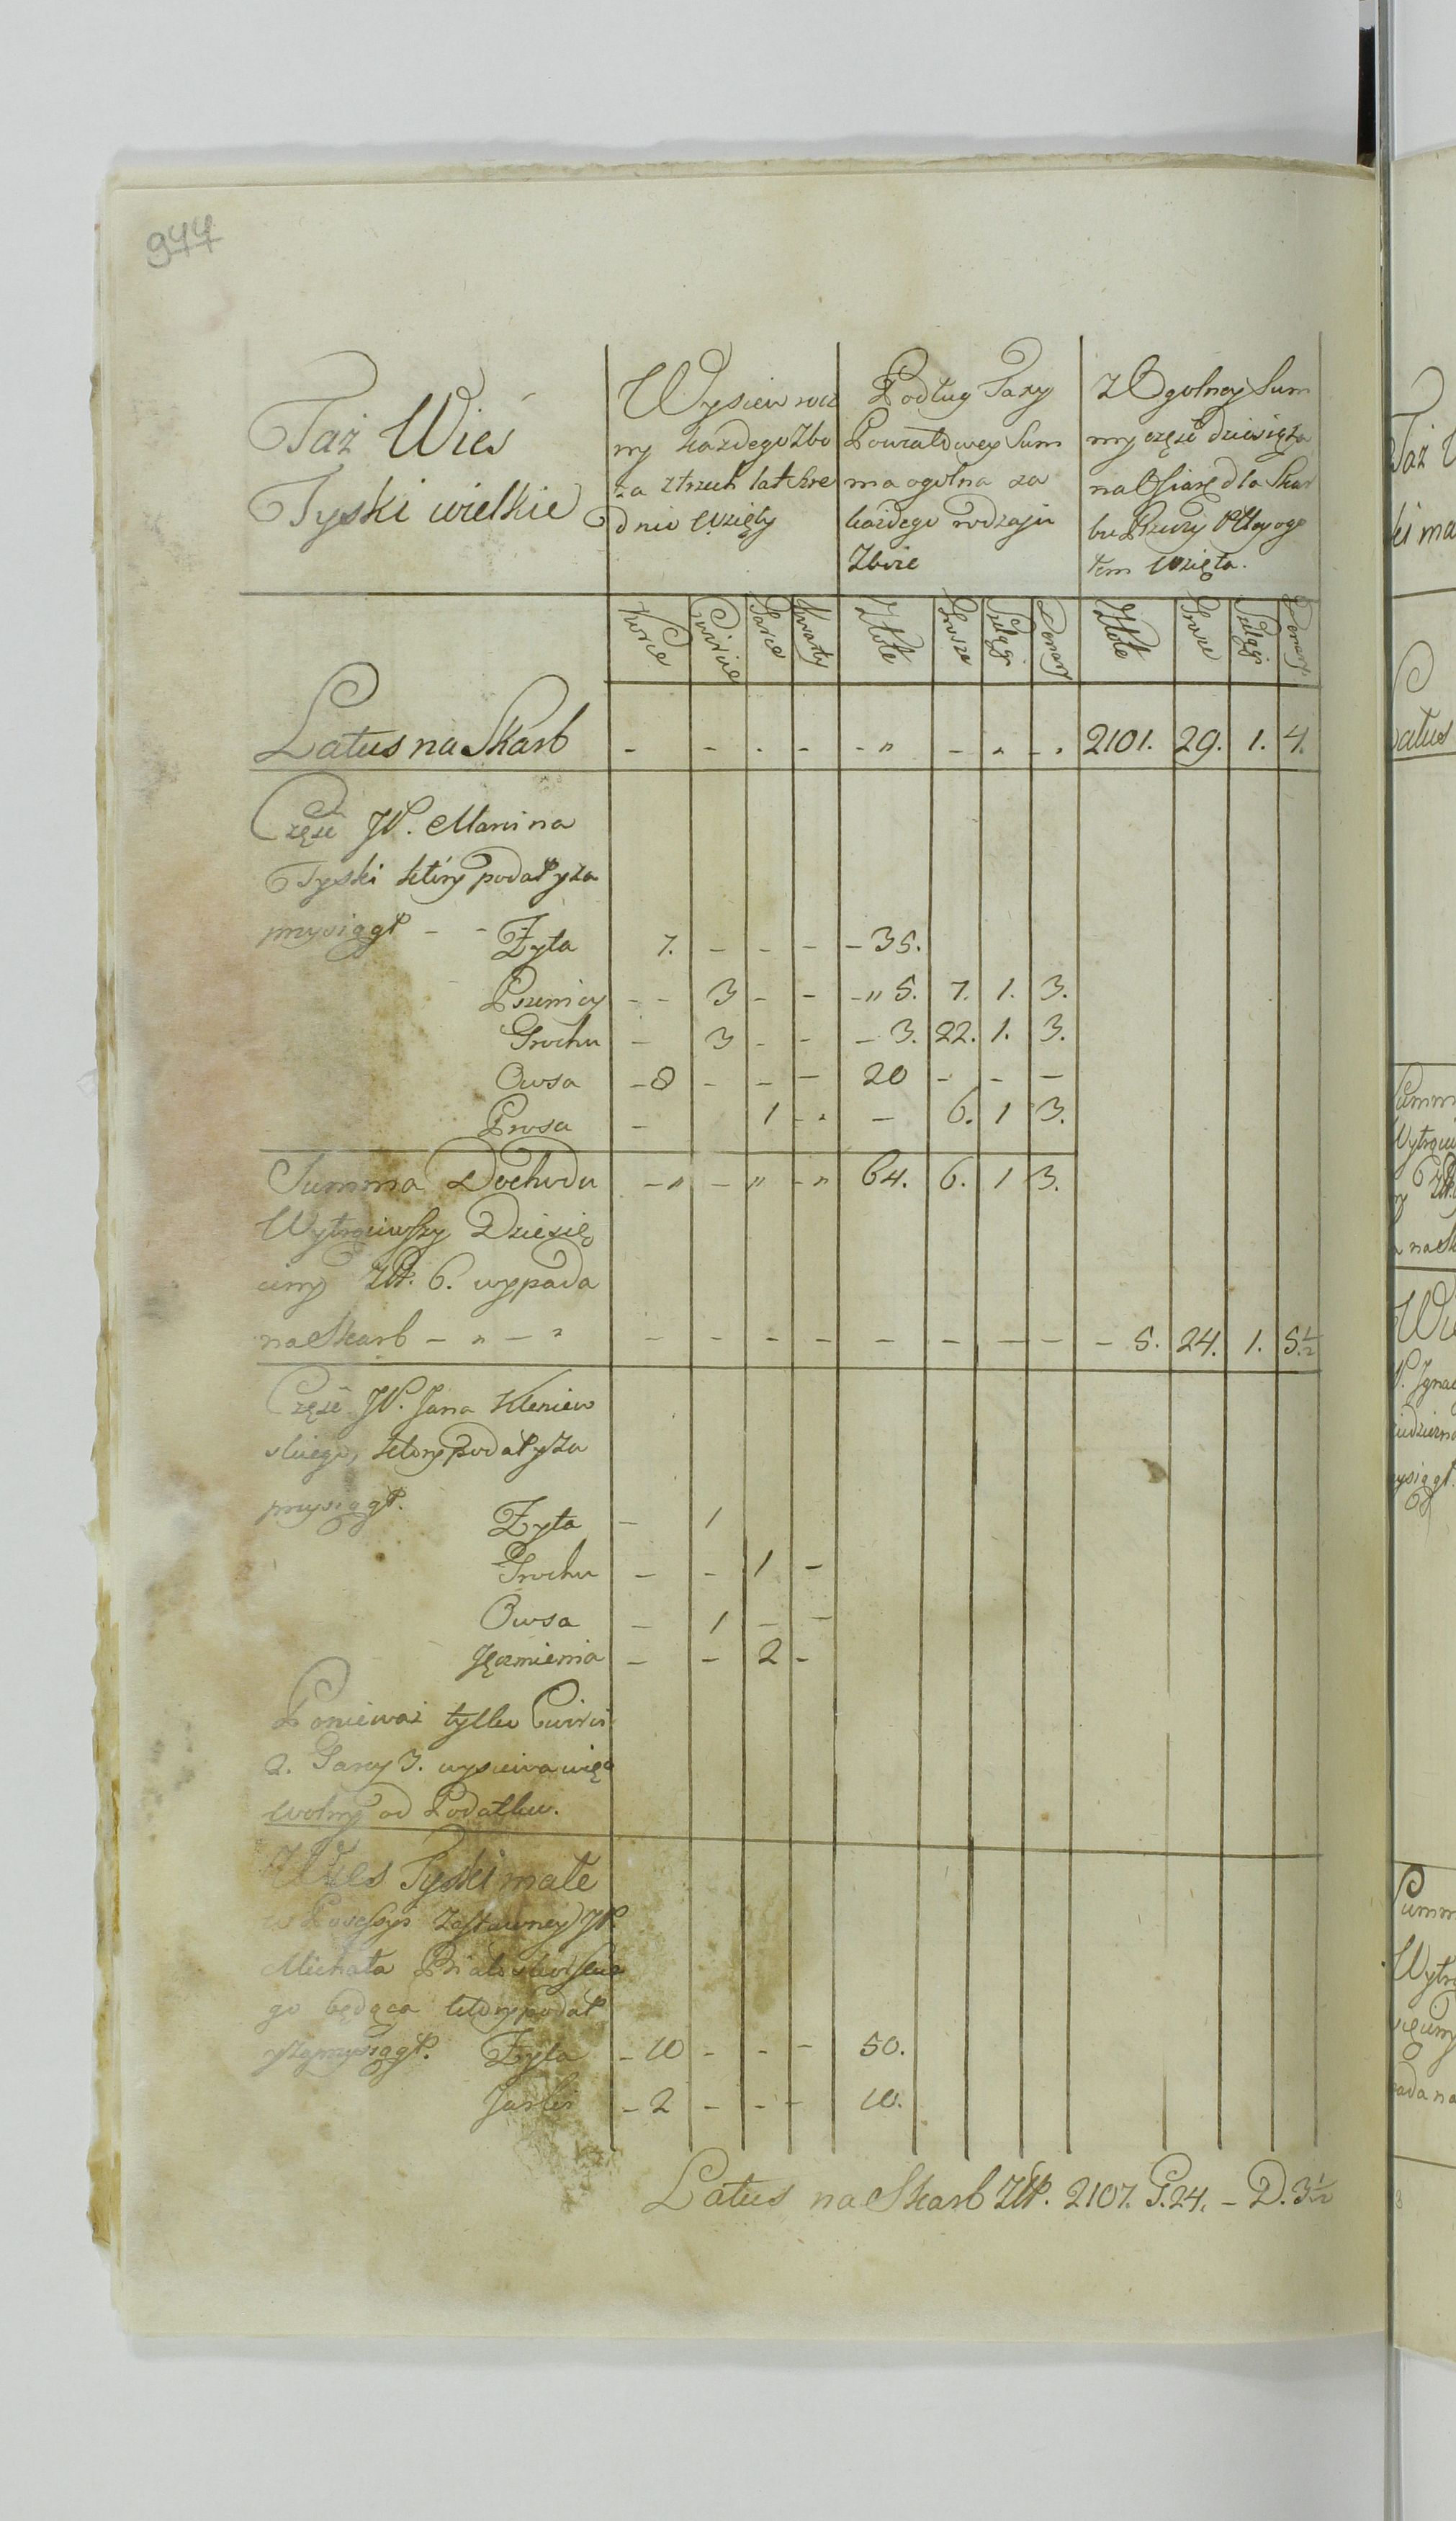 944
Taż Wieś
Tyski wielkie
Wysiew rocz
ny każdego Zbo
ża z trzech lat śre
dnio wzięty
Podług Taxy
Powiatowey Sum
ma ogulna za
każdego rodzaju
Zboże
Z Ogolney Sum
my część dziesiąta
na Ofiarę dla Skar
bu Rzeczy Pltey ogo
łem wzięta.
Korce Cwierce Garce Kwarty Złote Grosze Szelągi Denary Złote Grosze Szelągi Denary
Latus na Skarb - - - - - " - - - 2101. 29. 1. 4.
Część JP. Marcina
Tyski który podał y za
przysiągł - - Żyta 7. - - - - 35.
Pszenicy - - 3 - - - " 5. 7. 1. 3.
Grochu - 3 - - - 3. 22. 1. 3.
Owsa - 8 - - - 20 - - -
Prosa - 1 - - 6. 1 3.
Summa Dochodu - " - " - " 64. 6. 1 3.
Wytrąciwszy Dziesię
ciny Złt. 6. wypada
na Skarb - " - " - - - - - - - - - 5. 24. 1. 5. 1/2
Część JP. Jana Kleniew
skiego, który podał y za
przysiągł. Żyta - 1
Grochu - - 1 -
Owsa - 1 - -
Jęczmienia - - 2 -
Ponieważ tylko Cwierci
2. Garcy 3. wysiewa więc
wolny od Podatku.
Wieś Tyski małe
w Possessyi Zastawney JP.
Michała
go będąca który podał
y zaprzysiągł. Żyta - 10 - - - 50.
Jarki - 2 - - - 10.
Latus na Skarb Złt. 2107. G. 24. - D. 3 1/2